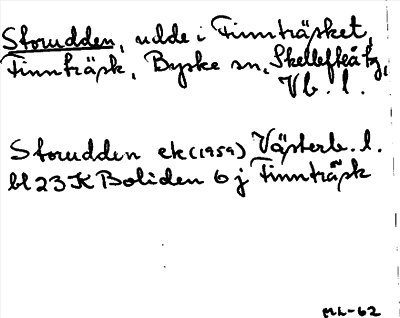 Storudden, udde i Finnträsket,
Finnträsk, Byske sn, Skellefteå tg,
Vb. l.
Storudden ek (1959) Västerb. l.
bl 23 K Boliden 6 j Finnträsk
ML-62